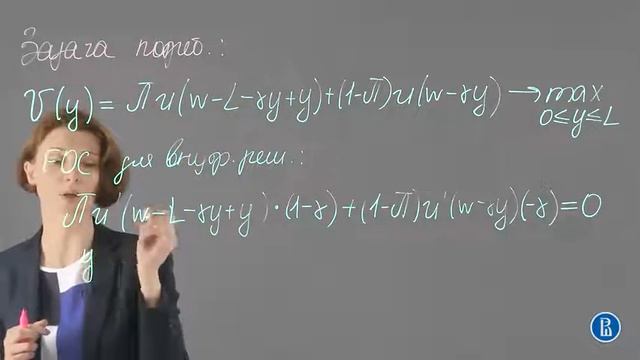 Задача потреб.:
V(y) = πu(w-L-γy+y)+(1-π)u(w-γy) → max
0≤y≤L
FOC для внутр. реш.:
πu'(w-L-γy+y)·(1-γ)+(1-π)u'(w-γy)(-γ)=0
y